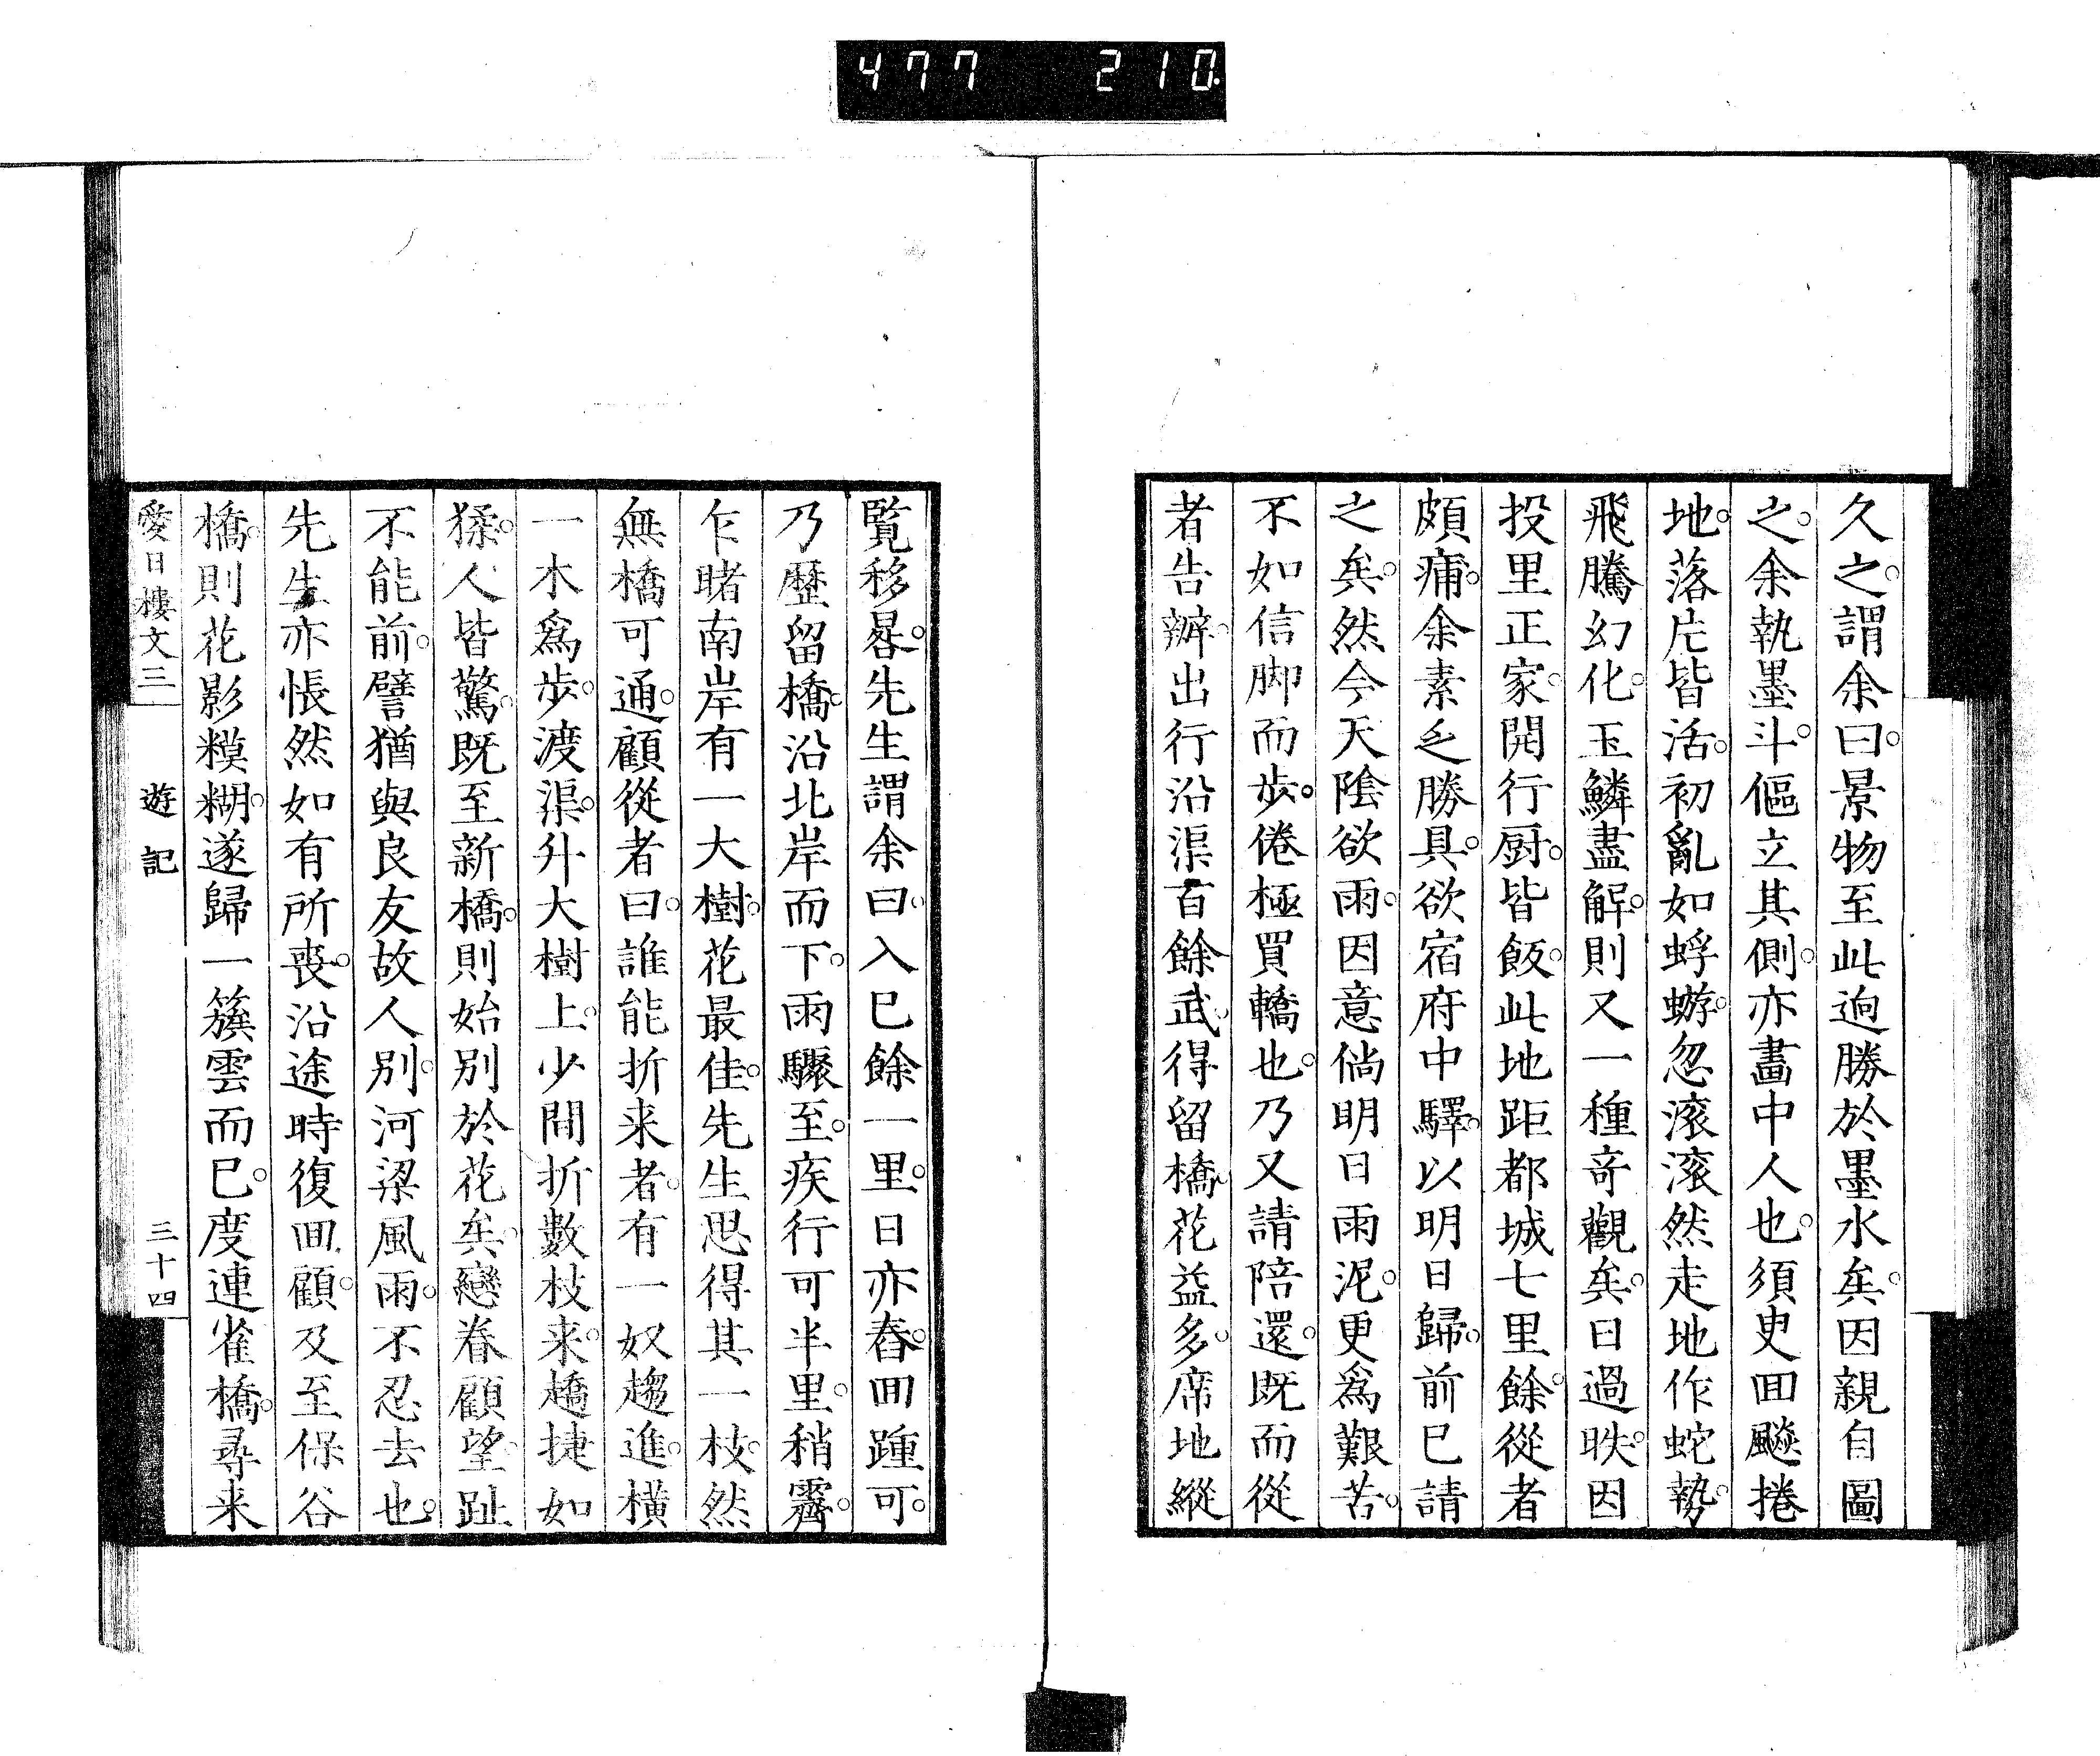 477 210
久之。謂余曰。景物至此迥勝於墨水矣。因親自圖
之。余執墨斗。傴立其側。亦畫中人也。須臾回飈捲
地。落片皆活。初亂如蜉蝣。忽滚滚然走地作蛇勢。
飛騰幻化。玉鱗盡解。則又一種竒觀矣。日過昳。因
投里正家。開行厨。皆飯。此地距都城七里餘。從者
頗痡。余素乏勝具。欲宿府中驛。以明日歸。前已請
之矣。然今天陰欲雨。因意倘明日雨泥。更爲艱苦。
不如信脚而步。倦極買轎也。乃又請陪還。既而從
者告辦。出行沿渠百餘武。得留橋。花益多。席地縱
覽移晷。先生謂余曰。入已餘一里。日亦舂。回踵可。
乃歷留橋。沿北岸而下。雨驟至。疾行可半里。稍霽。
乍睹南岸有一大樹。花最佳。先生思得其一枝。然
無橋可通。顧從者曰。誰能折来者。有一奴趨進。横
一木爲步。渡渠。升大樹上。少間折數枝来。趫捷如
猱。人皆驚。既至新橋。則始別於花矣。戀眷顧望。趾
不能前。譬猶與良友故人別。河梁風雨。不忍去也。
先生亦悵然如有所喪。沿途時復回顧。及至保谷
橋。則花影糢糊。遂歸一簇雲而已。度連雀橋。尋来
愛日樓文三 遊記 三十四